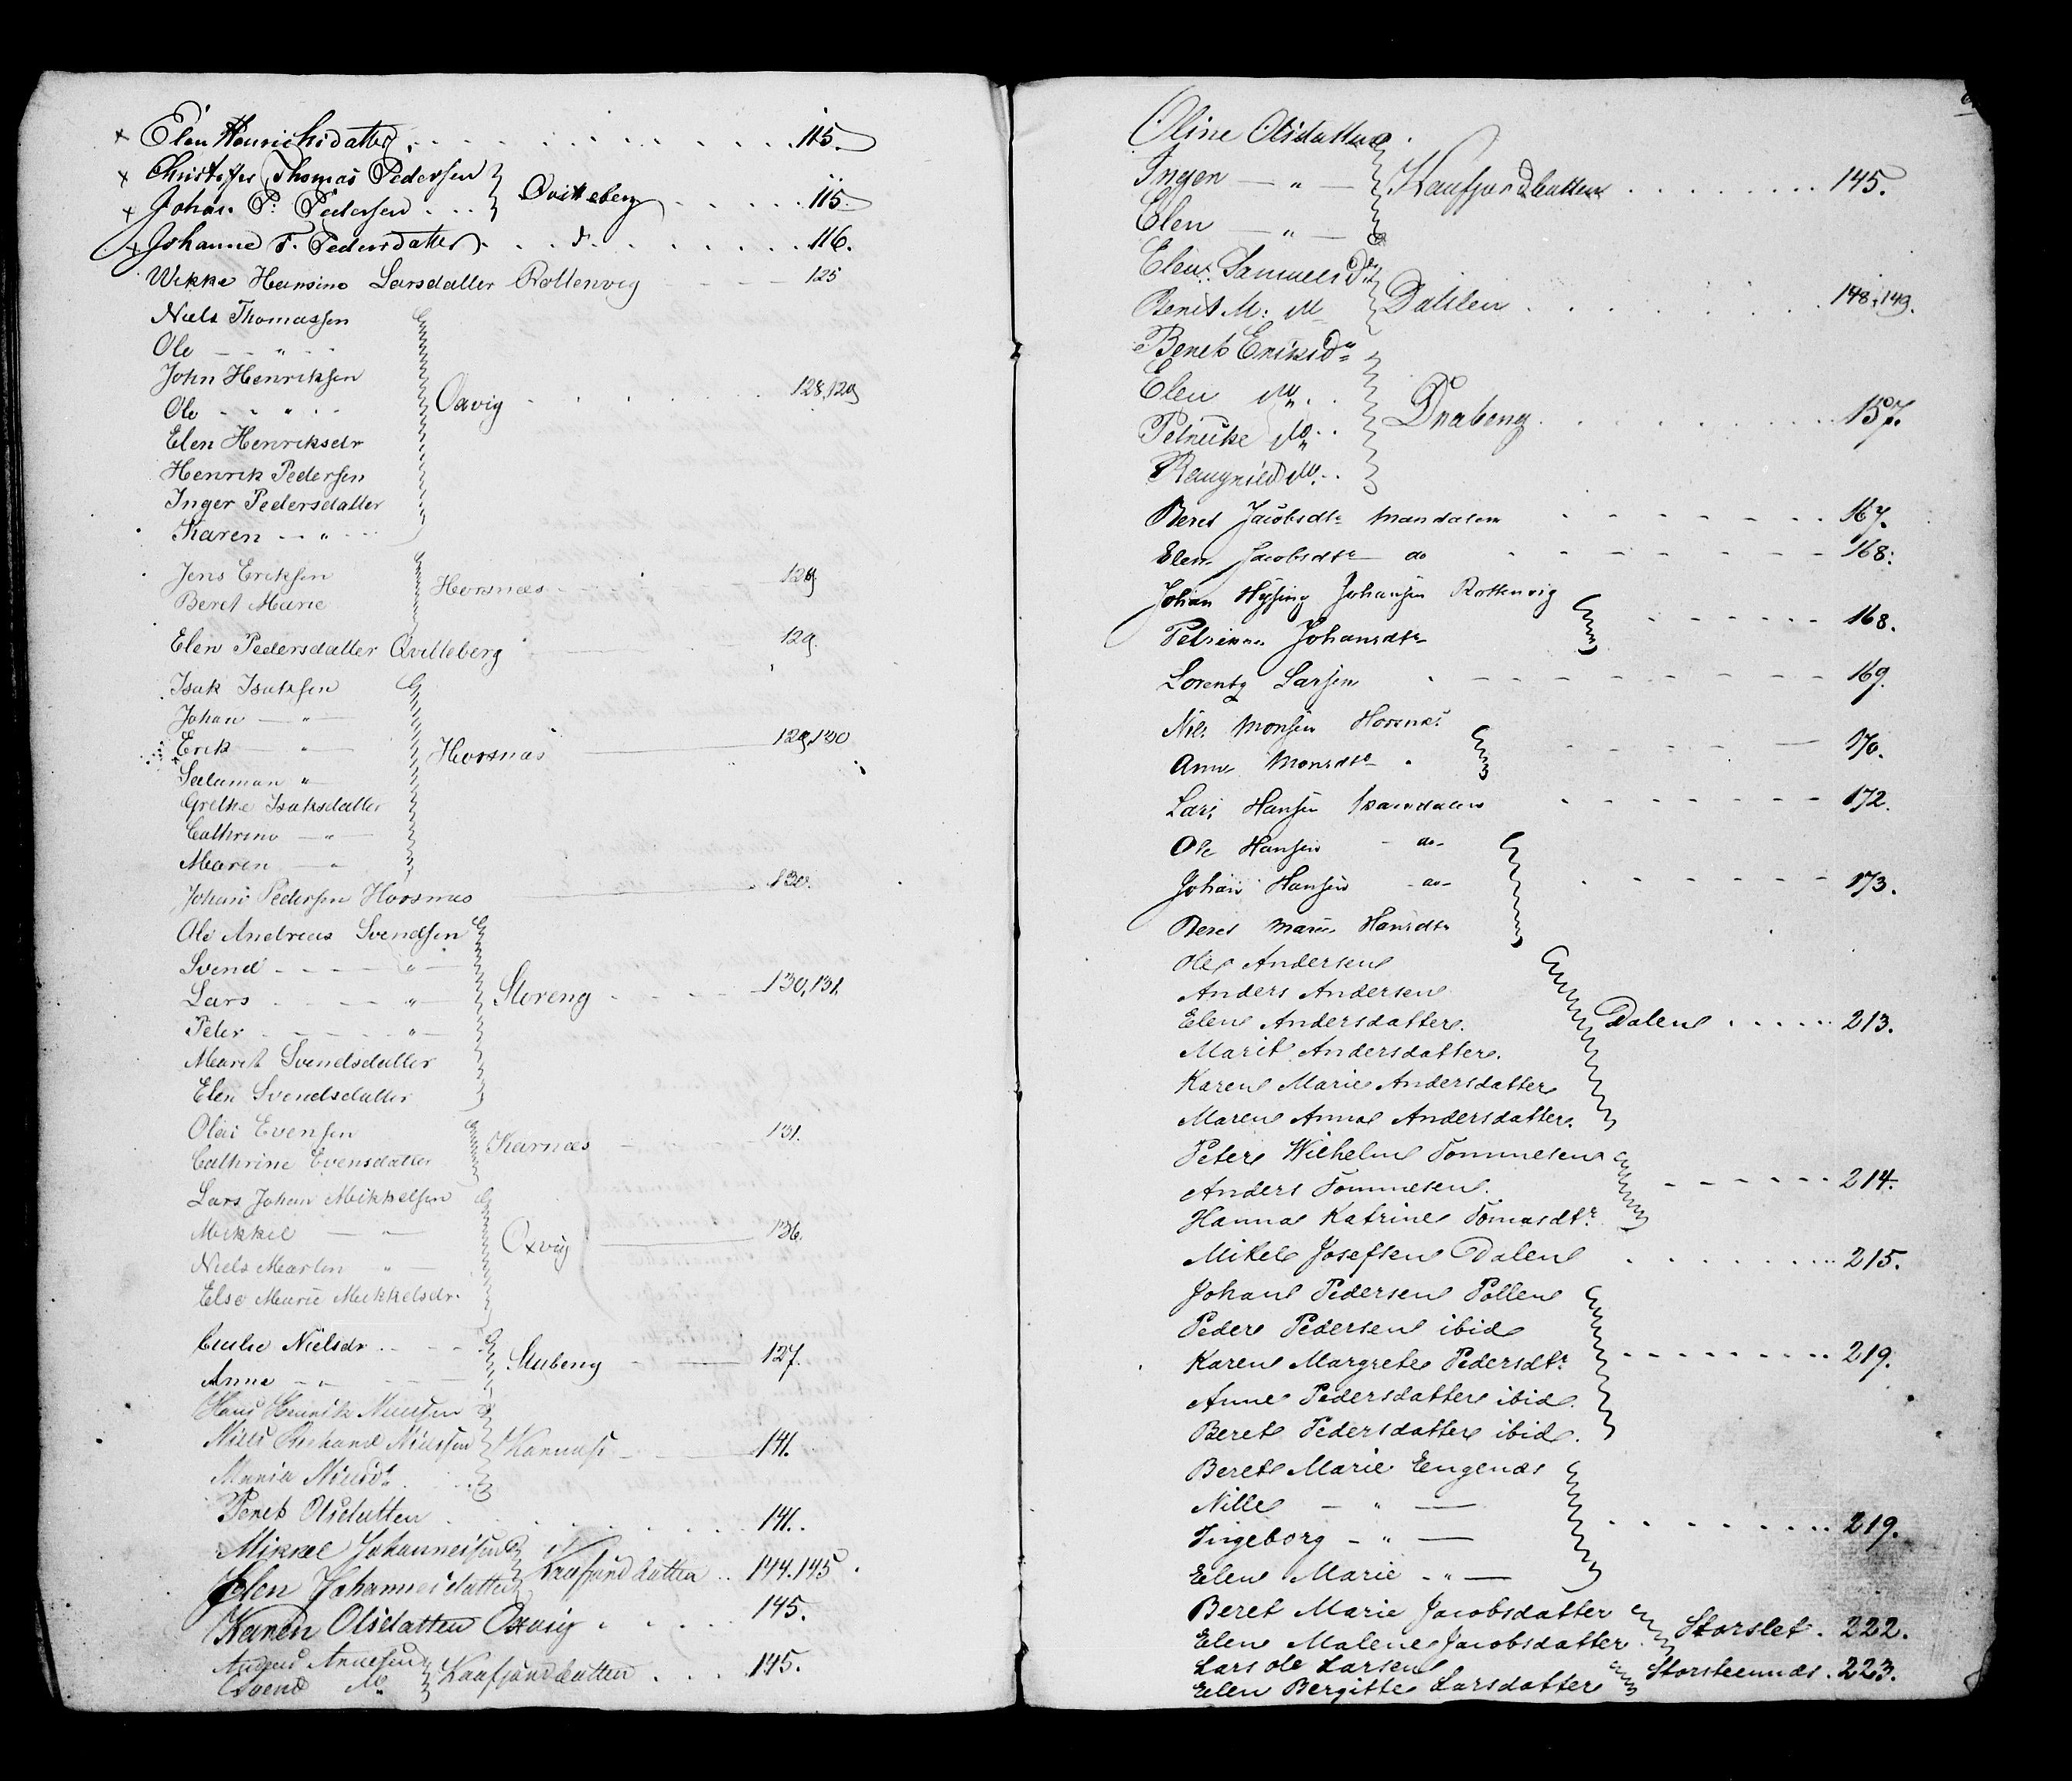 + Elen Henrichsdatter . . . . . . . . 115.
+ Christofer Thomas Pedersen
+ Johan P: Pedersen . . . Qvitteberg . . . . . 115.
+ Johanne F. Pedersdatter . . . d° . . . . . . 116.
Wikka Hansine Larsdatter Rottenvig — — — 125
Niels Thomassen
Ole — — " — —
John Henriksen
Ole - - " - - Oxvig - . . . . . . 128,129
Elen Henriksdr
Henrik Pedersen
Inger Pedersdatter
Karen - - " - - -
Jens Eriksen
Beret Marie Horsnæs - - - 129.
Elen Pedersdatter Qvitteberg — 129.
Isak Isaksen
Johan — " —
Erik — " — Horsnæs — 129,130
Salamon "
Grethe Isaksdatter
Cathrine — " —
Maren — "
Johan Pedersen Horsnæs — 130.
Ole Andreas Svendsen
Svend - - - - " -
Lars - - - - " - Storeng - - - - 130,131.
Peter - - - - - " -
Maret Svendsdatter
Elen Svendsdatter
Olai Evensen
Cathrine Evensdatter Karnæs - 131.
Lars Johan Mikkelsen
Mikkel — " —
Niels Martin " — Oxvig — 136.
Else Marie Mikkelsdr.
Nielsdr . - - -
Anna - " - Stubeng - — 127.
Hans Henrik Nielsen
Niels Nielsen — 141.
Maria Nielsdr
Beret Olsdatter . . . . . . . . 141.
Mikkel Johannesen
Elen Johannesdatter Kaafjordbotten . . 144.145
Karen Olsdatter Oxvig . . . . 145.
Svend do Kaafjordbotten . . . 145.
Oline Olsdatter
Inger — " — Kaafjordbotten . . . . . . . . 145.
Elen — " —
Elen Samuelsdr
Berit M: do Dahlen . . . . . . . . 148,149.
Beret Eriksdr
Elen do . . Draberg . . . . . . . . 157.
Petrikke do . .
Rangnild do . .
Beret Jacobsdtr Mandalen - - - - - - - 167.
Elen Jacobsdtr do - - - - - - - 168.
Johan Hysing Johansen Rottenvig
Petrikke Johansdtr - - - - - - 168.
Lorentz Larsen - - - - - - - - - 169.
Nils Monsen Horsnes
Anne Monsdtr " - - - - - — 170.
Lars Hansen Mandalen - - - - - - - 172.
Ole Hansen - do -
Johan Hansen - do - - - - - - - - 173.
Beret Marie Hansdtr
Ole Andersen
Anders Andersen
Elen Andersdatter. Dalen . . . . . 213.
Marit Andersdatter.
Karen Marie Andersdatter
Maren Anna Andersdatter.
Peter Wilhelm Tommesen
Anders Tommesen. - - - - - - 214.
Hanna Katrine Tomasdtr.
Mikel Josefsen Dalen . . . . . . . . 215.
Johan Pedersen Pollen
Peder Pedersen ibid
Karen Margrete Pedersdtr. - - - - - - - - 219.
Anne Pedersdatter ibid.
Beret Pedersdatter ibid.
Beret Marie Eugenæs
Nille — " —
Ingeborg - " — . . . . . . . . 219.
Elen Marie - " —
Beret Marie Jacobsdatter
Elen Malene Jacobsdatter. Storslet . 222.
Lars Ole Larsen
Elen Bergitte Larsdatter Storsteennæs . 223.